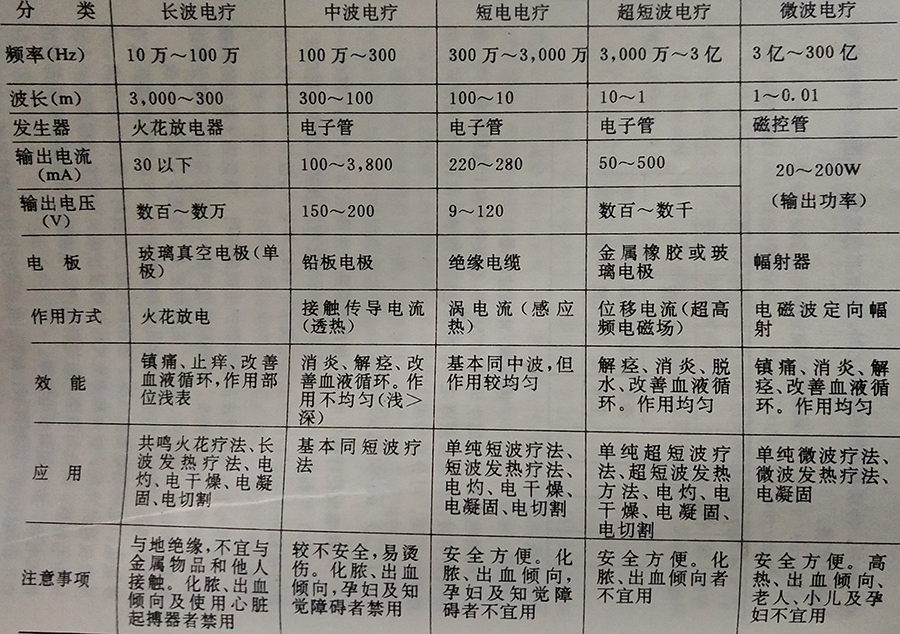 分 类 长波电疗 中波电疗 短电电疗 超短波电疗 微波电疗
频率(Hz) 10万～100万 100万～300 300万～3,000万 3,000万～3亿 3亿～300亿
波长(m) 3,000～300 300～100 100～10 10～1 1～0.01
发生器 火花放电器 电子管 电子管 电子管 磁控管
输出电流
(mA) 30以下 100～3,800 220～280 50～500 20～200W
(输出功率)
输出电压
(V) 数百～数万 150～200 9～120 数百～数千
电 板 玻璃真空电极(单
极) 铅板电极 绝缘电缆 金属橡胶或玻
璃电极 幅射器
作用方式 火花放电 接触传导电流
(透热) 涡电流(感应
热) 位移电流(超高
频电磁场) 电磁波定向幅
射
效 能 镇痛、止痒、改善
血液循环,作用部
位浅表 消炎、解痉、改
善血液循环。作
用不均匀(浅>
深) 基本同中波,但
作用较均匀 解痉、消炎、脱
水、改善血液循
环。作用均匀 镇痛、消炎、解
痉、改善血液循
环。作用均匀
应 用 共鸣火花疗法、长
波发热疗法、电
灼、电干燥、电凝
固、电切割 基本同短波疗
法 单纯短波疗法、
短波发热疗法、
电灼、电干燥、
电凝固、电切割 单纯超短波疗
法、超短波发热
方法、电灼、电
干燥、电凝固、
电切割 单纯微波疗法、
微波发热疗法、
电凝固
注意事项 与地绝缘,不宜与
金属物品和他人
接触。化脓、出血
倾向及使用心脏
起搏器者禁用 较不安全,易烫
伤。化脓、出血
倾向,孕妇及知
觉障碍者禁用 安全方便。化
脓、出血倾向,
孕妇及知觉障
碍者不宜用 安全方便。化
脓、出血倾向者
不宜用 安全方便。高
热、出血倾向、
老人、小儿及孕
妇不宜用